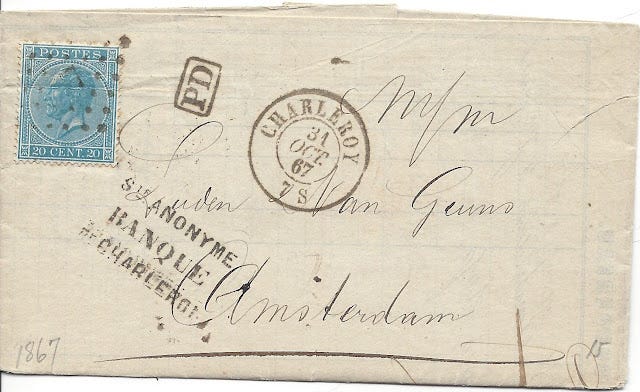 POSTES
20 CENT. 20
PD
CHARLEROY
31
OCT
67
7 S
Sté ANONYME
BANQUE
DE CHARLEROI
Van Geuns
Amsterdam
1867
15